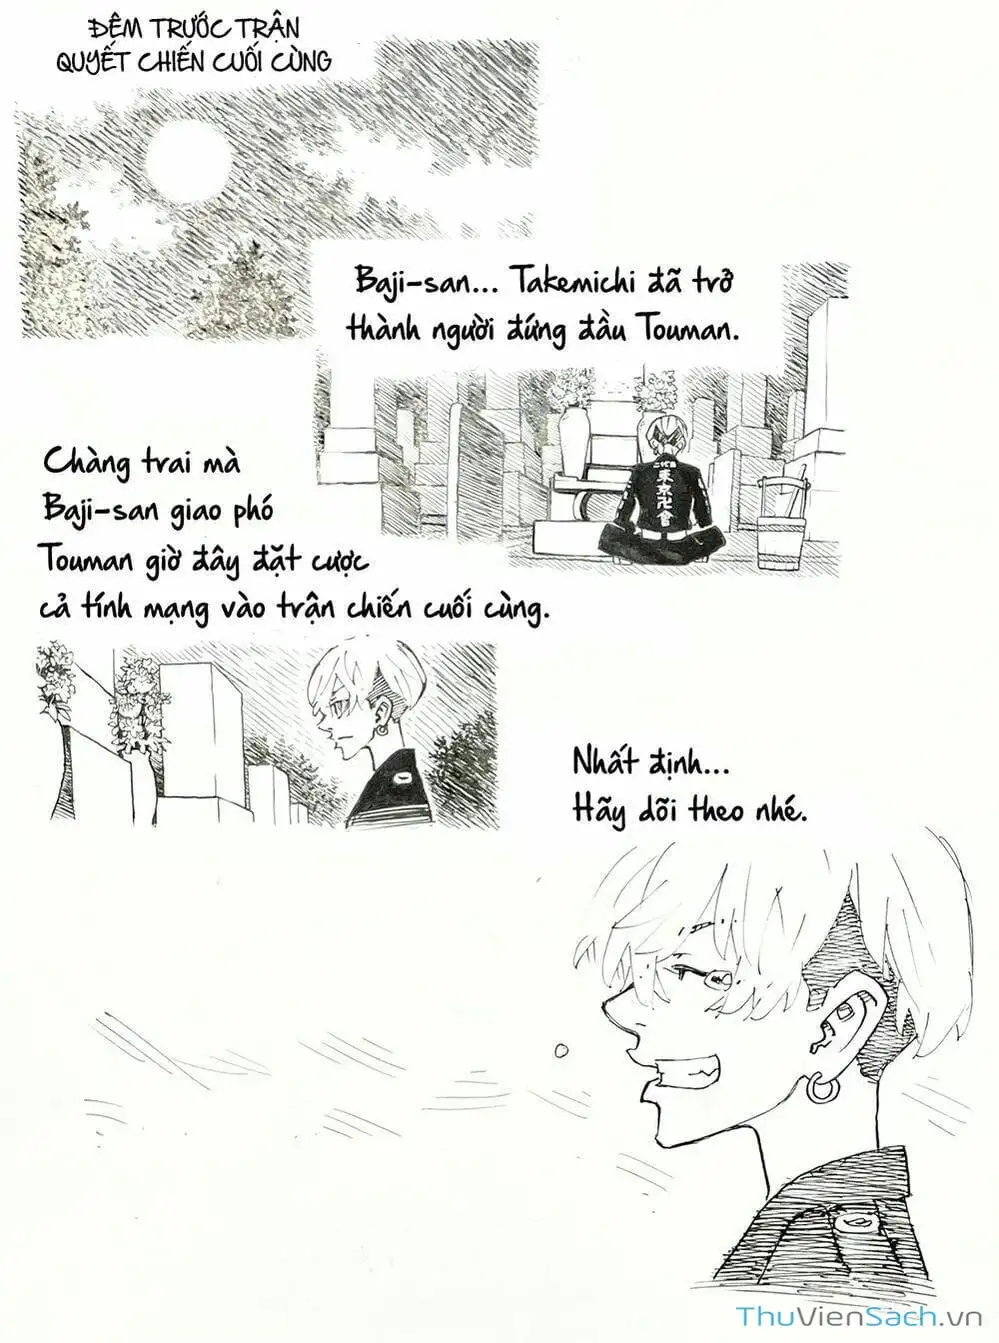 ĐÊM TRƯỚC TRẬN
QUYẾT CHIẾN CUỐI CÙNG
Baji-san... Takemichi đã trở
thành người đứng đầu Touman.
Chàng trai mà
Baji-san giao phó
Touman giờ đây đặt cược
cả tính mạng vào trận chiến cuối cùng.
二代目
東京卍會
Nhất định...
Hãy dõi theo nhé.
ThuVienSach.vn